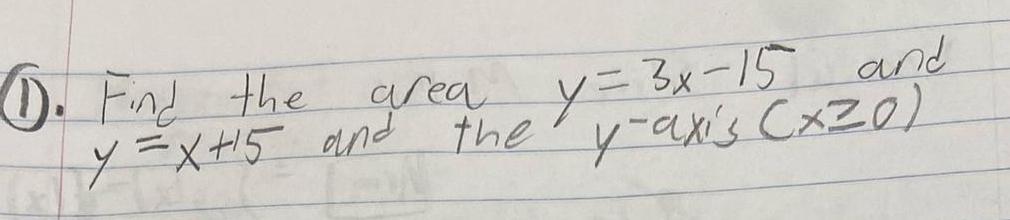 ①. Find the area y = 3x-15 and
y = x+15 and the y-axis (x≥0)